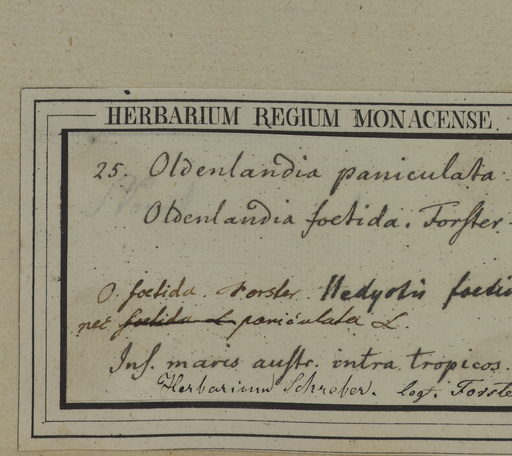 HERBARIUM REGIUM MONACENSE
25. Oldenlandia paniculata.
Oldenlandia foetida. Forster.
O. foetida. Forster. Hedyotis foetid
nec foetida L paniculata L.
Ins. maris austr. intra tropicos.
Herbarium Schreber. legt. Forste